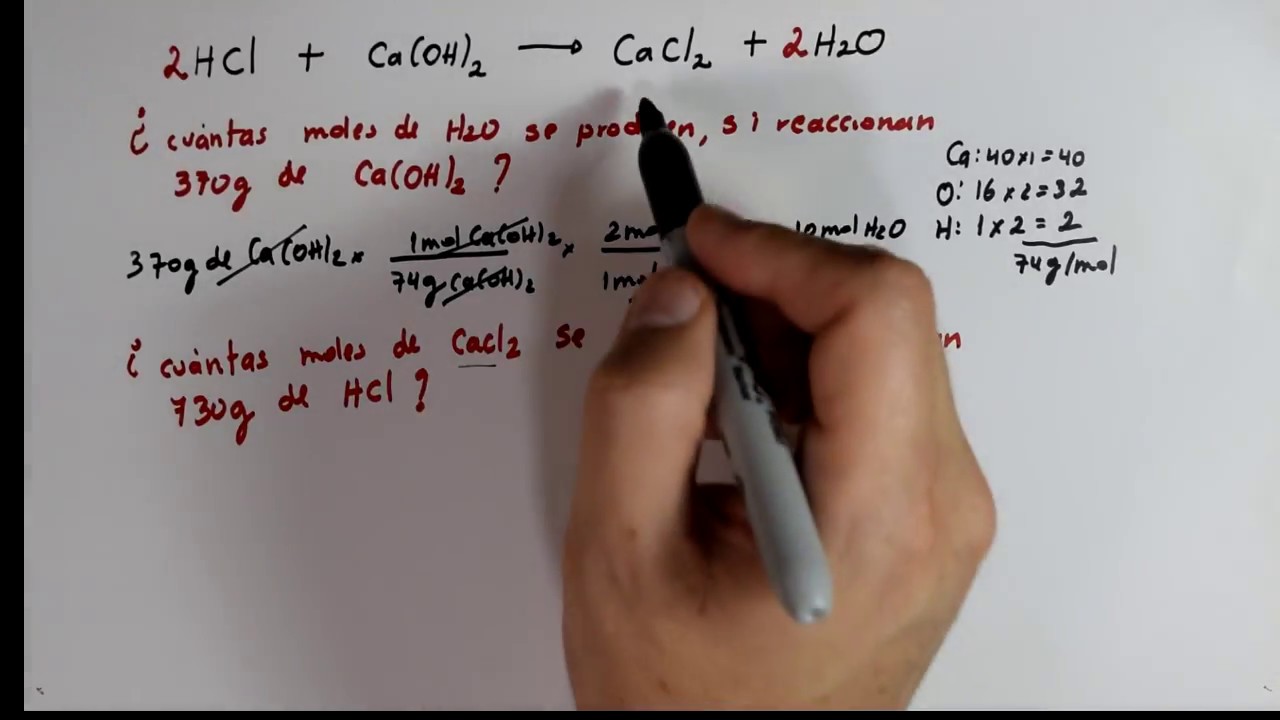 2HCl + Ca(OH)2 → CaCl2 + 2H2O
¿ cuántas moles de H2O se si reaccionan
370g de Ca(OH)2 ?
Ca: 40x1 = 40
O: 16 x 2 = 32
H: 1 x 2 = 2
74g/mol
370g de Ca(OH)2 x 1mol Ca(OH)2 x 2 10mol H2O
74g Ca(OH)2 1
¿ cuántas moles de CaCl2 se
730g de HCl ?